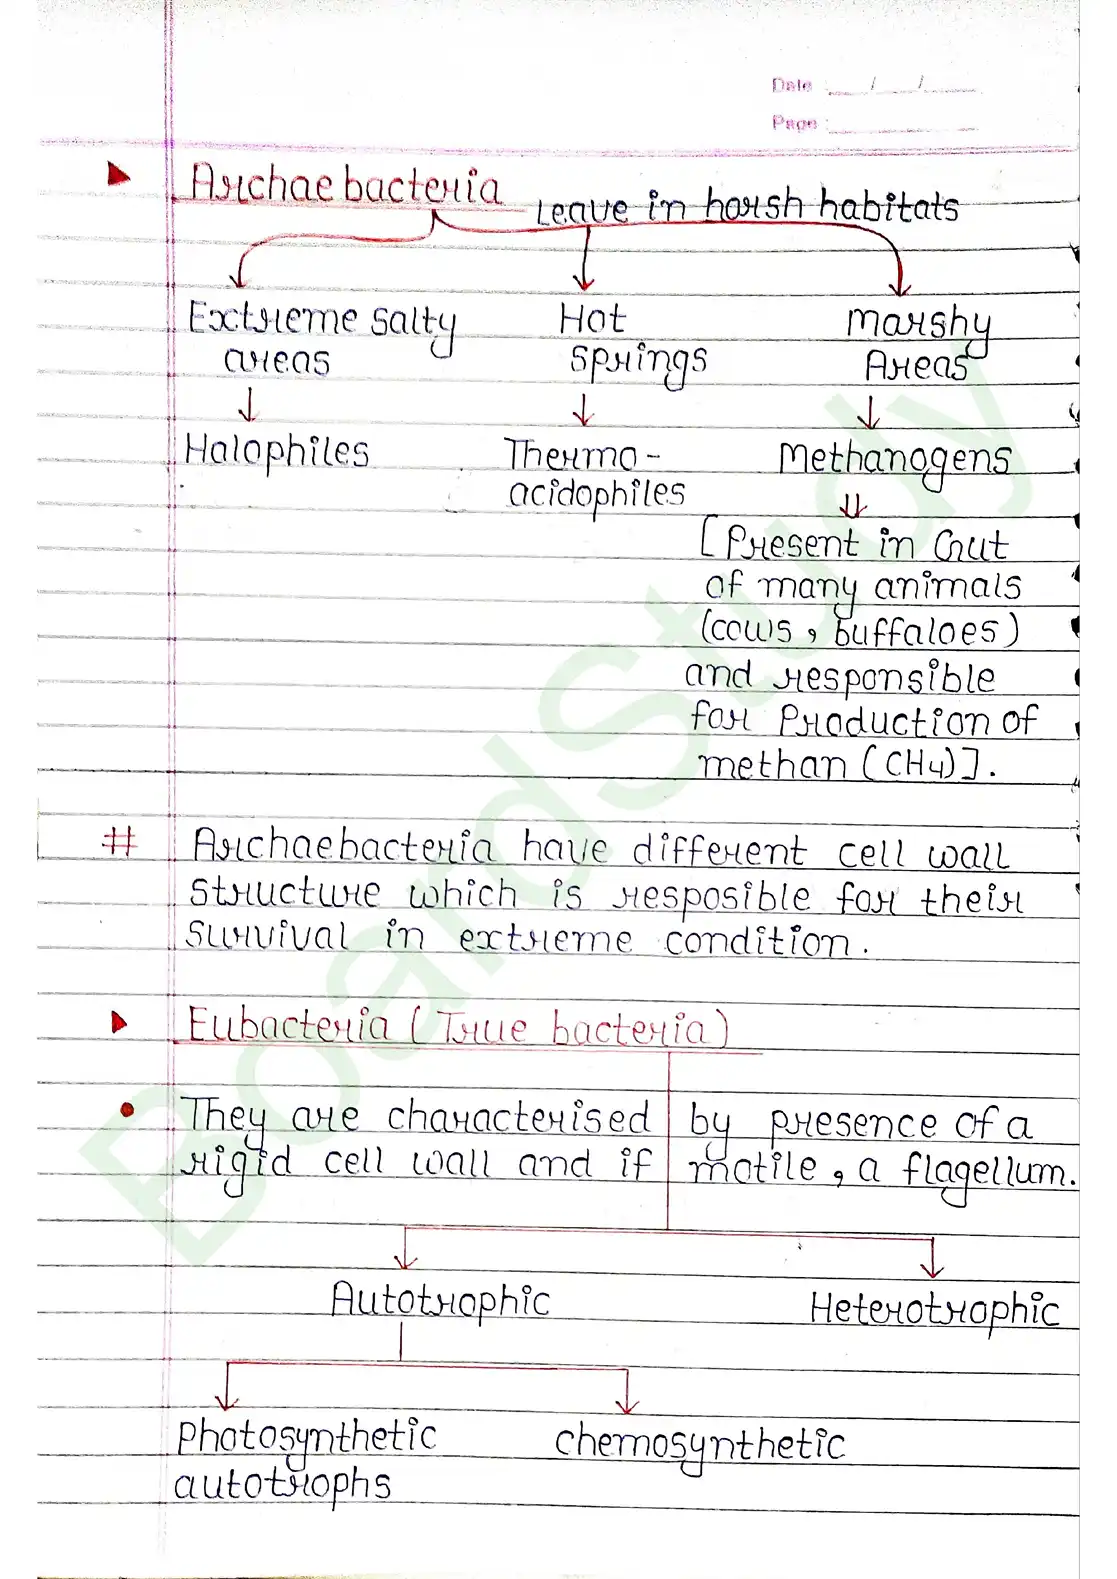 Date : __/__/__
Page :
Archaebacteria Leave in harsh habitats
Extreme salty Hot Marshy
areas springs Areas
Halophiles Thermo- Methanogens
acidophiles
[Present in Gut
of many animals
(cows, buffaloes)
and responsible
for Production of
methan (CH4)].
# Archaebacteria have different cell wall
structure which is resposible for their
survival in extreme condition.
Eubacteria (True bacteria)
• They are characterised by presence of a
rigid cell wall and if motile, a flagellum.
Autotrophic Heterotrophic
Photosynthetic chemosynthetic
autotrophs
BoardStudy